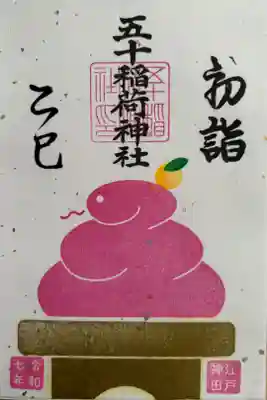 初詣
五十稲荷神社
乙巳
江戸
神田
令和
七年